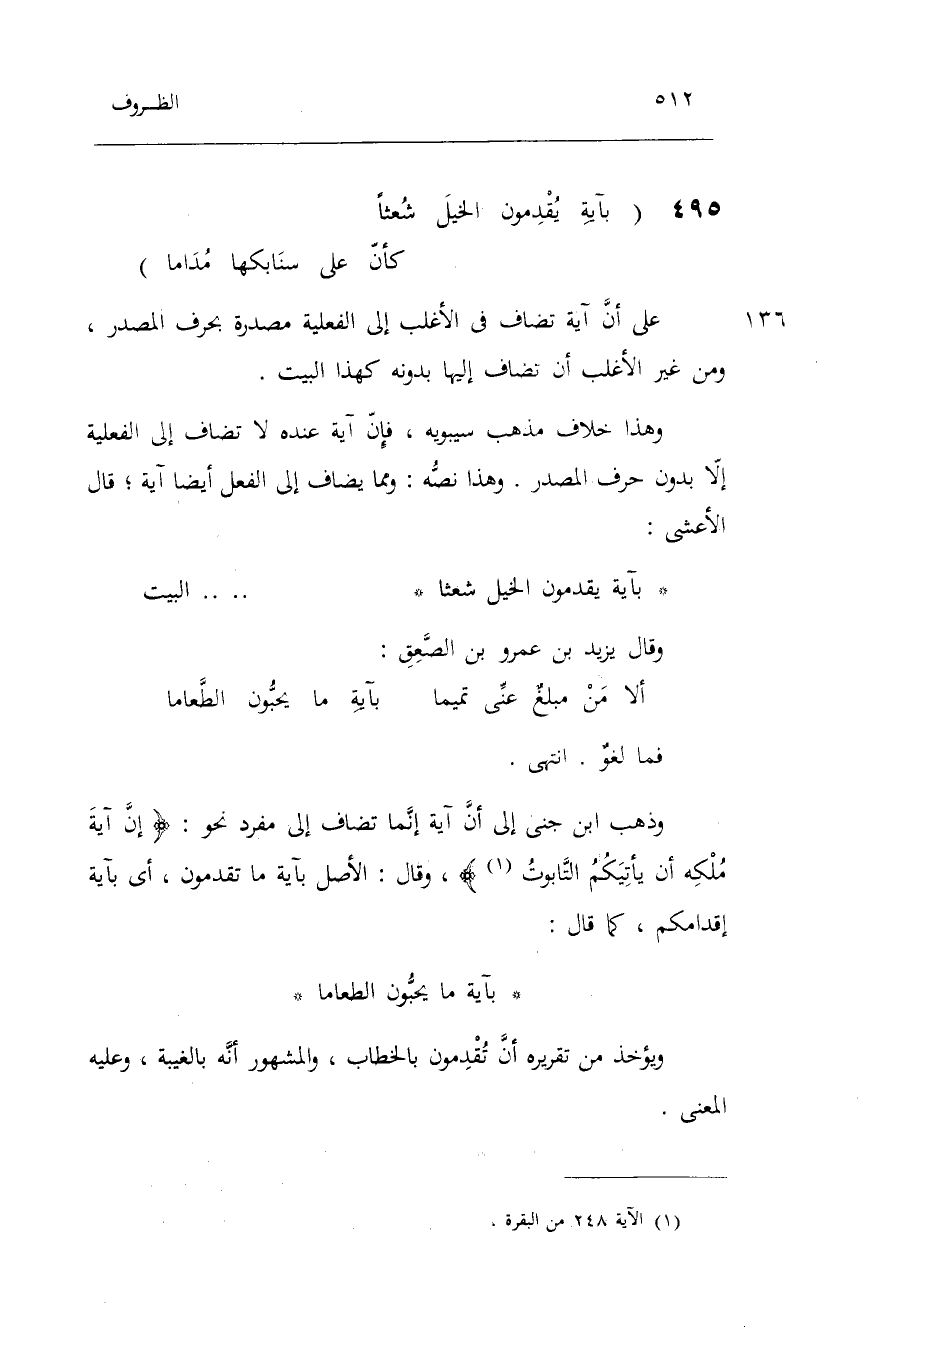 ٥١٢ الظــروف
٤٩٥ ( بآيةِ يُقْدِمون الخيلَ شُعثاً
كأنّ على سنَابكها مُدَاما )
١٣٦ على أنَّ آية تضاف فى الأغلب إلى الفعلية مصدرة بحرف المصدر ،
ومن غير الأغلب أن تضاف إليها بدونه كهذا البيت .
وهذا خلاف مذهب سيبويه ، فإِنّ آية عنده لا تضاف إلى الفعلية
إلّا بدون حرف المصدر . وهذا نصُّه : ومما يضاف إلى الفعل أيضا آية ؛ قال
الأعشى :
* بآية يقدمون الخيل شعثا * .. .. البيت
وقال يزيد بن عمرو بن الصَّعِقِ :
ألا مَنْ مبلغٌ عنِّى تميما بآيةِ ما يحبُّون الطَّعاما
فما لغوٌ . انتهى .
وذهب ابن جنى إلى أنَّ آية إنَّما تضاف إلى مفرد نحو : ﴿ إنَّ آيةَ
مُلْكِه أن يأتِيَكُمُ التَّابوتُ (١) ﴾ ، وقال : الأصل بآية ما تقدمون ، أى بآية
إقدامكم ، كما قال :
* بآية ما يحبُّون الطعاما *
ويؤخذ من تقريره أنَّ تُقْدِمون بالخطاب ، والمشهور أنَّه بالغيبة ، وعليه
المعنى .
(١) الآية ٢٤٨ من البقرة .